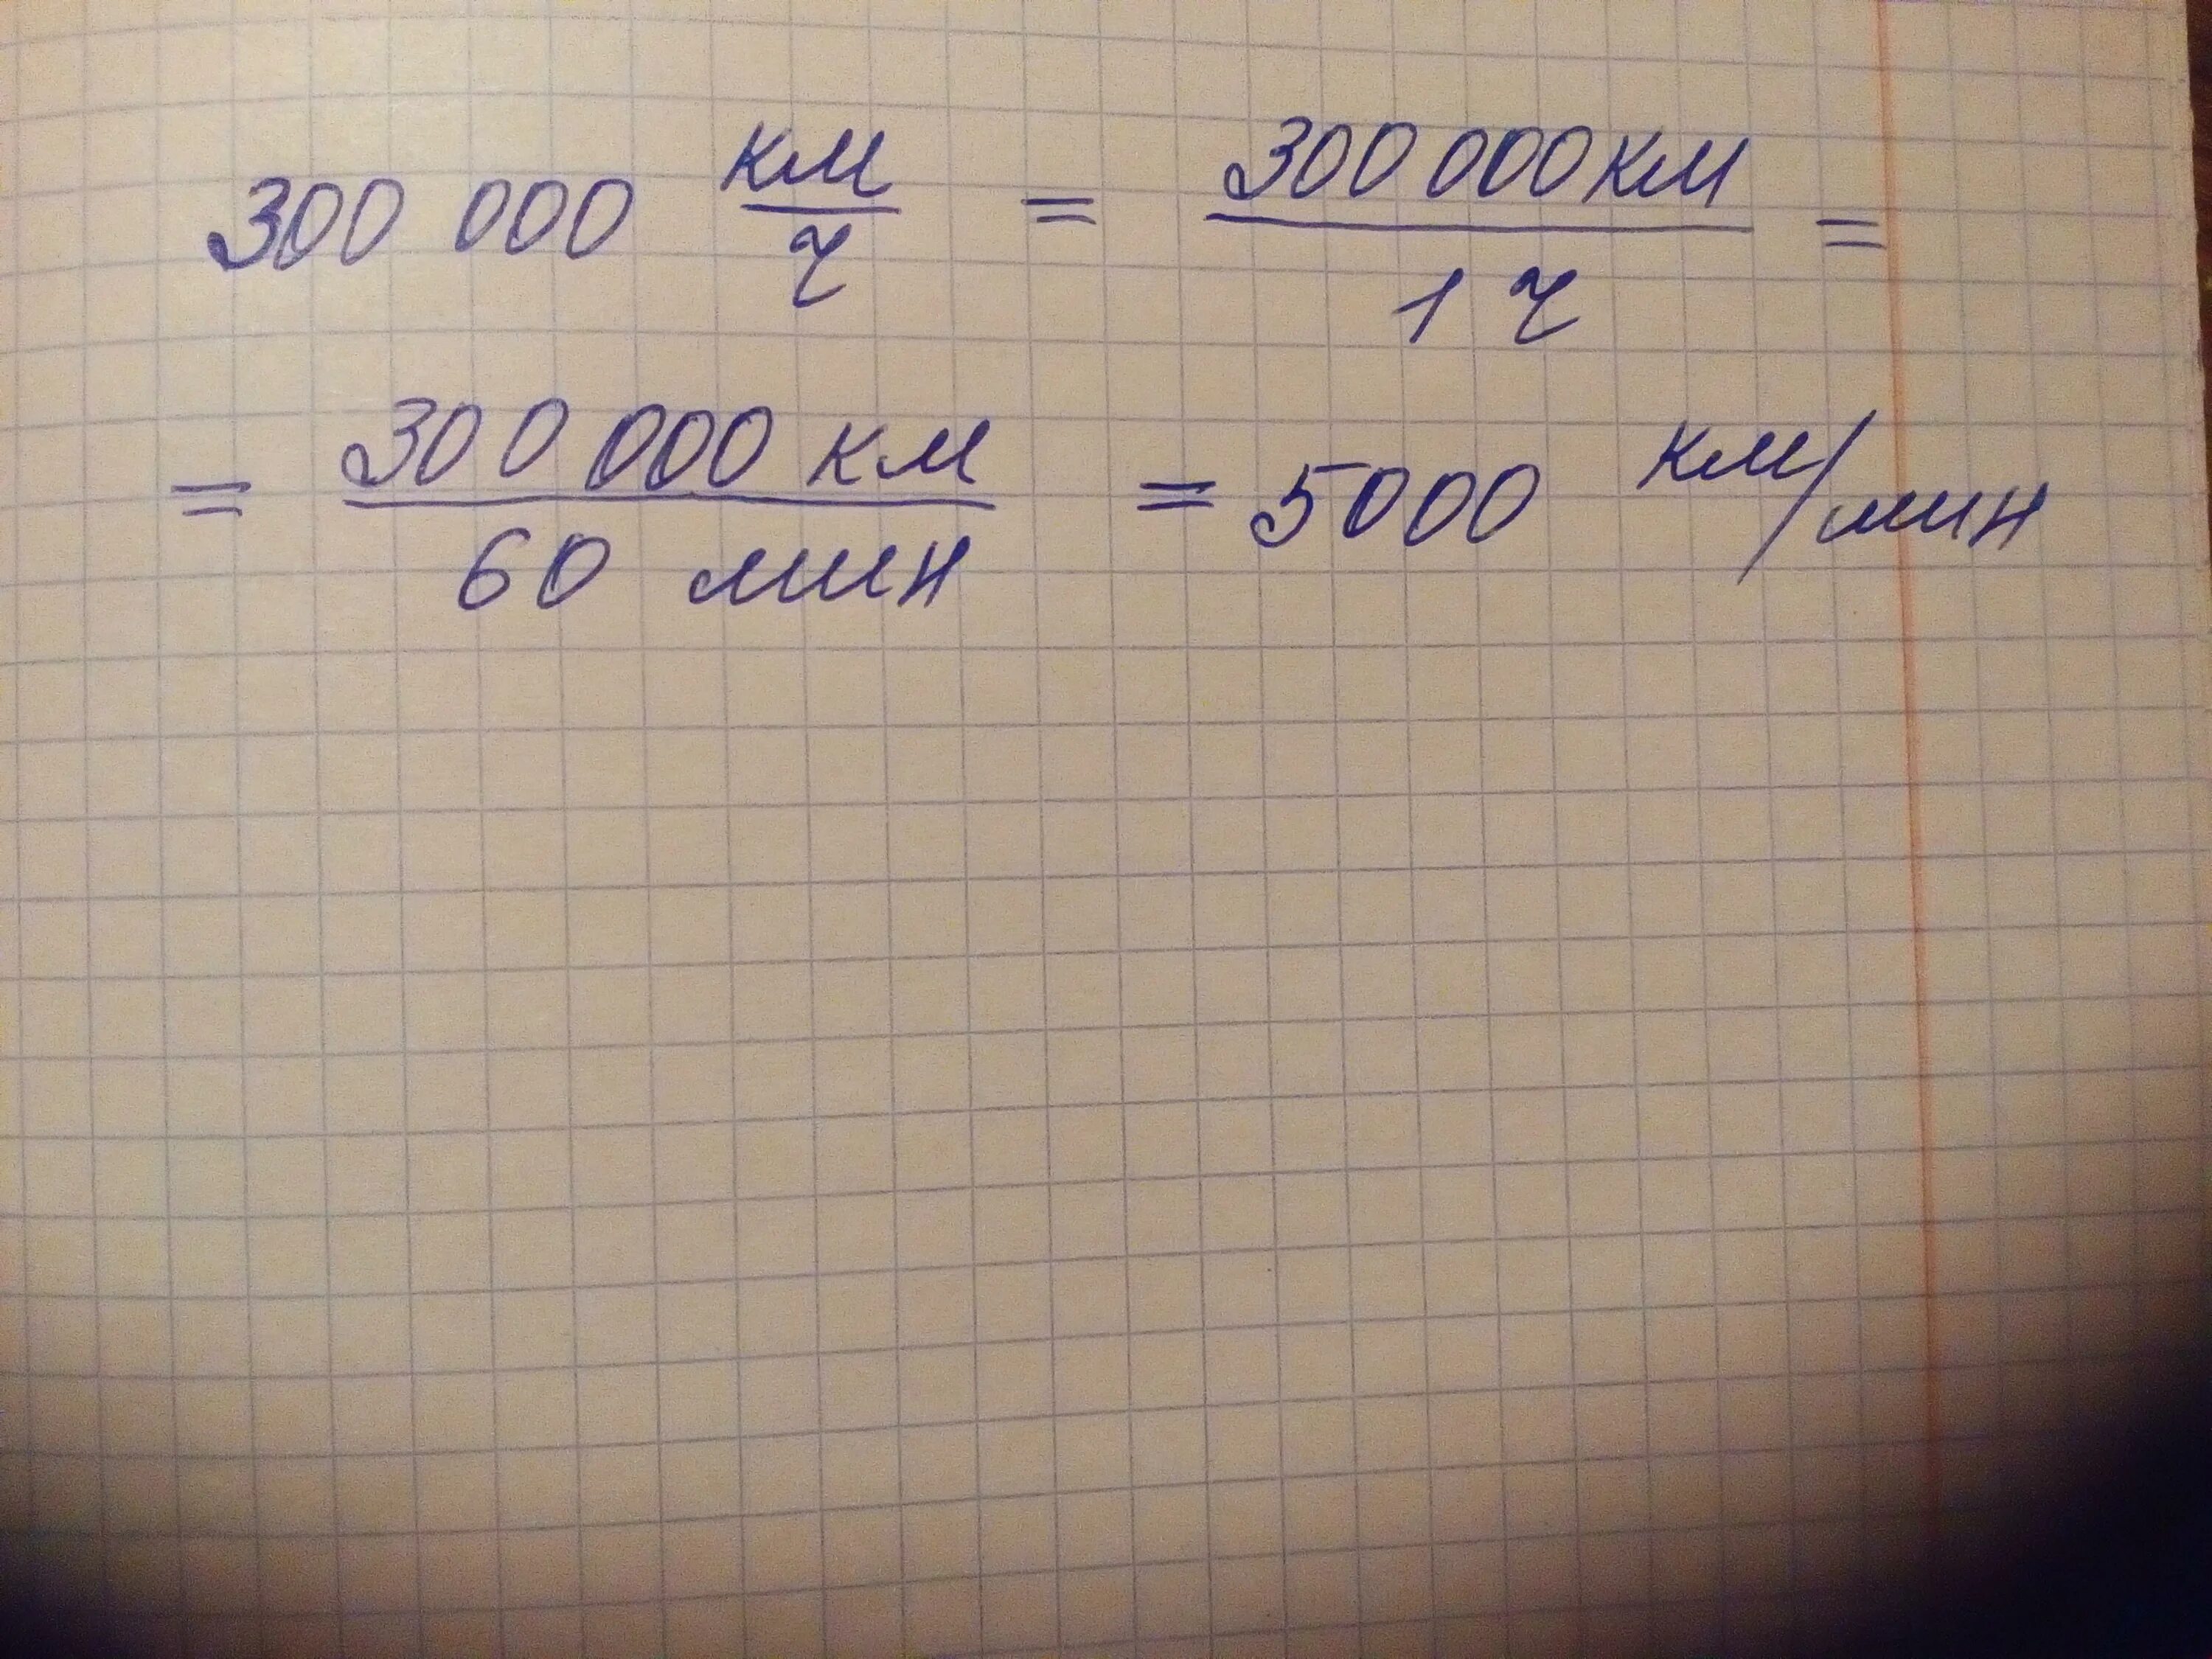 300 000 км/ч = 300 000 км / 1 ч =
= 300 000 км / 60 мин = 5000 км/мин